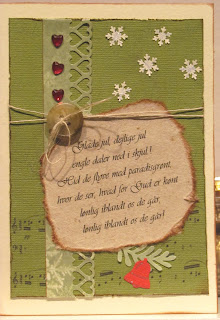 Glade jul, dejlige jul
engle daler ned i skjul!
Hid de flyve med paradisgrønt,
hvor de ser, hvad for Gud er kønt
lønlig iblandt os de går,
lønlig iblandt os de går!